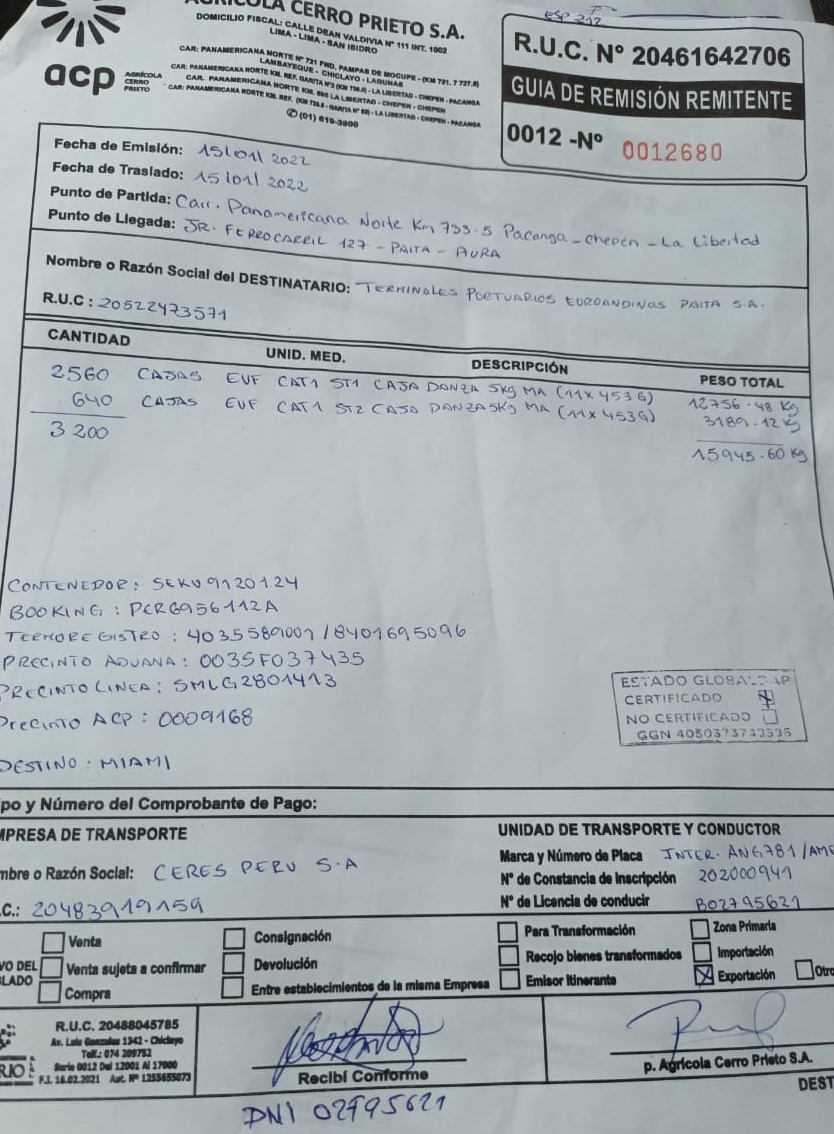 AGRÍCOLA CERRO PRIETO S.A.
DOMICILIO FISCAL: CALLE DEAN VALDIVIA Nº 111 INT. 1002
LIMA - LIMA - SAN ISIDRO
CAR: PANAMERICANA NORTE Nº 721 FND. PAMPAS DE MOCUPE - (KM 721. 7 737.8)
LAMBAYEQUE - CHICLAYO - LAGUNAS
CAR: PANAMERICANA NORTE KM. REF. GARITA Nº2 (KM 736.6) - LA LIBERTAD - CHEPEN - PACANGA
CAR. PANAMERICANA NORTE KM. 695 LA LIBERTAD - CHEPEN - CHEPEN
CAR: PANAMERICANA NORTE KM. REF. - LA LIBERTAD - CHEPEN - PACANGA
(01) 619-3900
acp AGRÍCOLA CERRO PRIETO
ESP 212
R.U.C. Nº 20461642706
GUIA DE REMISIÓN REMITENTE
0012 -Nº 0012680
Fecha de Emisión: 15/01/2022
Fecha de Traslado: 15/01/2022
Punto de Partida: Carr. Panamericana Norte Km 733.5 Pacanga - Chepen - La Libertad
Punto de Llegada: JR. FERROCARRIL 127 - PAITA - PIURA
Nombre o Razón Social del DESTINATARIO: TERMINALES PORTUARIOS EUROANDINOS PAITA S.A.
R.U.C : 20522473571
CANTIDAD UNID. MED. DESCRIPCIÓN PESO TOTAL
2560 CAJAS EUF CAT1 ST1 CAJA DANZA 5Kg MA (11X453G) 12756.48 Kg
640 CAJAS EUF CAT1 ST2 CAJA DANZA 5Kg MA (11X453G) 3189.12 Kg
3200 15945.60 Kg
CONTENEDOR: SEKU 9120124
BOOKING: PCRG956112A
TERMOREGISTRO : 4035589001 /8401695096
PRECINTO ADUANA: 0035F037435
PRECINTO LINEA: SMLG2801413
Precinto ACP : 0009168
DESTINO : MIAMI
ESTADO GLOBAL
CERTIFICADO
NO CERTIFICADO
GGN 4050373743535
po y Número del Comprobante de Pago:
MPRESA DE TRANSPORTE
mbre o Razón Social: CERES PERU S.A
.C.: 20483919159
UNIDAD DE TRANSPORTE Y CONDUCTOR
Marca y Número de Placa INTER. ANG781/AME
Nº de Constancia de Inscripción 202000941
Nº de Licencia de conducir B02795621
VO DEL
LADO
Venta
Venta sujeta a confirmar
Compra
Consignación
Devolución
Entre establecimientos de la misma Empresa
Para Transformación
Recojo bienes transformados
Emisor Itinerante
Zona Primaria
Importación
Exportación
Otro
RIO
R.U.C. 20488045785
Av. Luis Gonzales 1342 - Chiclayo
Telf.: 074 209752
Serie 0012 Del 12001 Al 17000
F.I. 16.02.2021 Aut. Nº 1255655073
Recibí Conforme
DNI 02795621
p. Agrícola Cerro Prieto S.A.
DEST